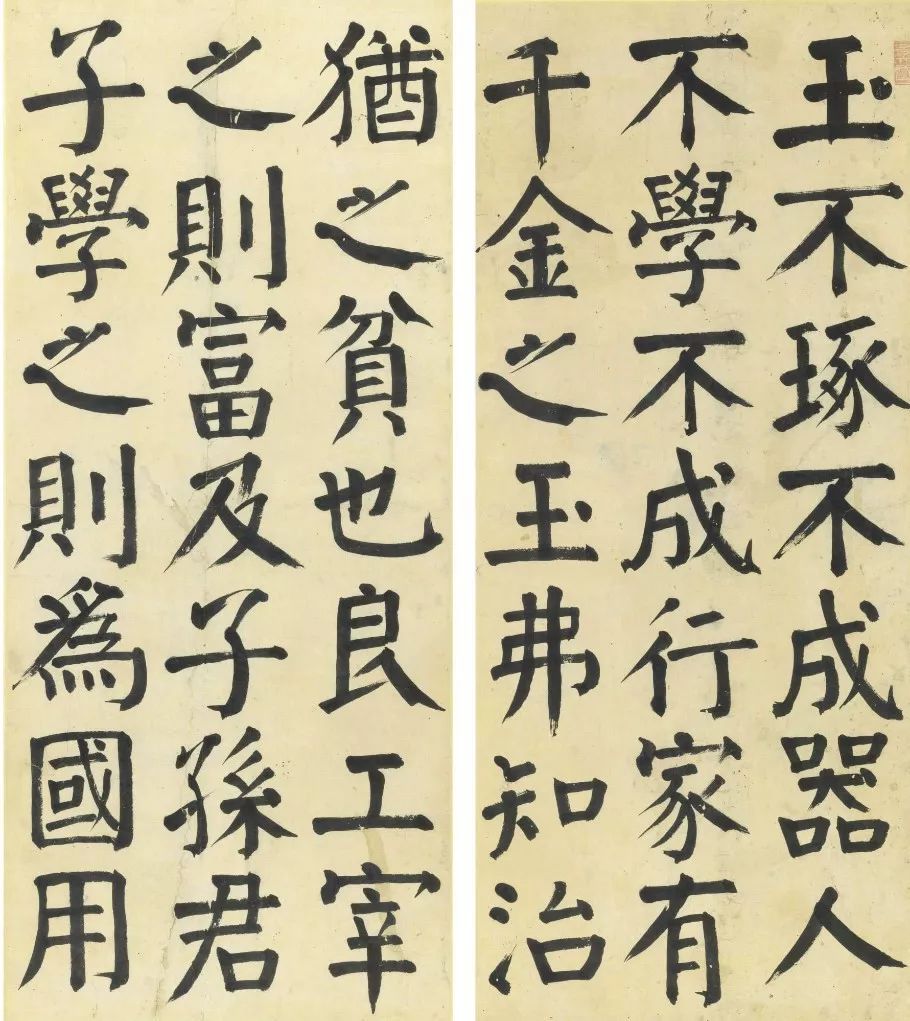 玉不琢不成器人
不學不成行家有
千金之玉弗知治
猶之貧也良工宰
之則富及子孫君
子學之則為國用